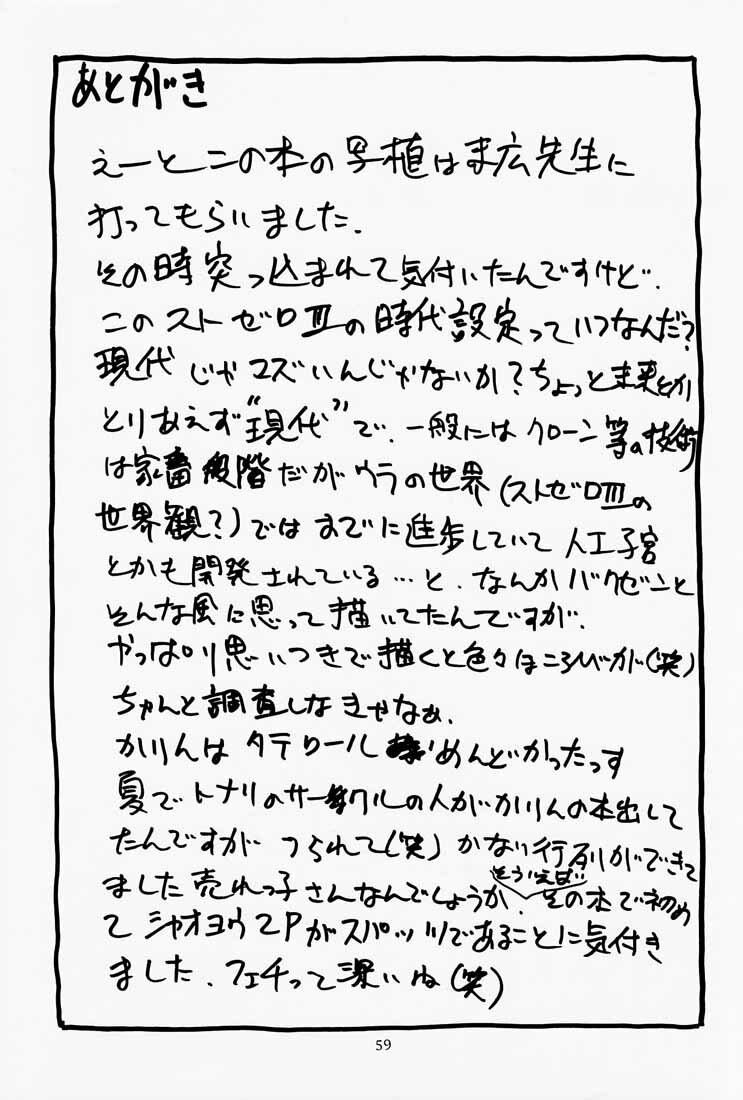 あとがき
えーとこの本の写植はま広先生に
打ってもらいました.
その時突っ込まれて気付いたんですけど.
このストゼロⅢの時代設定っていつなんだ?
現代じゃマズいんじゃないか?ちょっと未来とか
とりあえず“現代”で.一般にはクローン等の技術
は家畜段階だがウラの世界(ストゼロⅢの
世界観?)ではすでに進歩していて人工子宮
とかも開発されている…と.なんかバクゼンと
そんな風に思って描いてたんですが.
やっぱり思いつきで描くと色々ほころびが(笑)
ちゃんと調査しなきゃなぁ.
かりんはタテロールめんどかったっす
夏でトナリのサークルの人がかりんの本出して
たんですが つられて(笑) かない行列ができて
ました売れっ子さんなんでしょうか.そういえばその本で初め
てシャオヨウ2Pがスパッツであることに気付き
ました.フェチって深いね(笑)
59